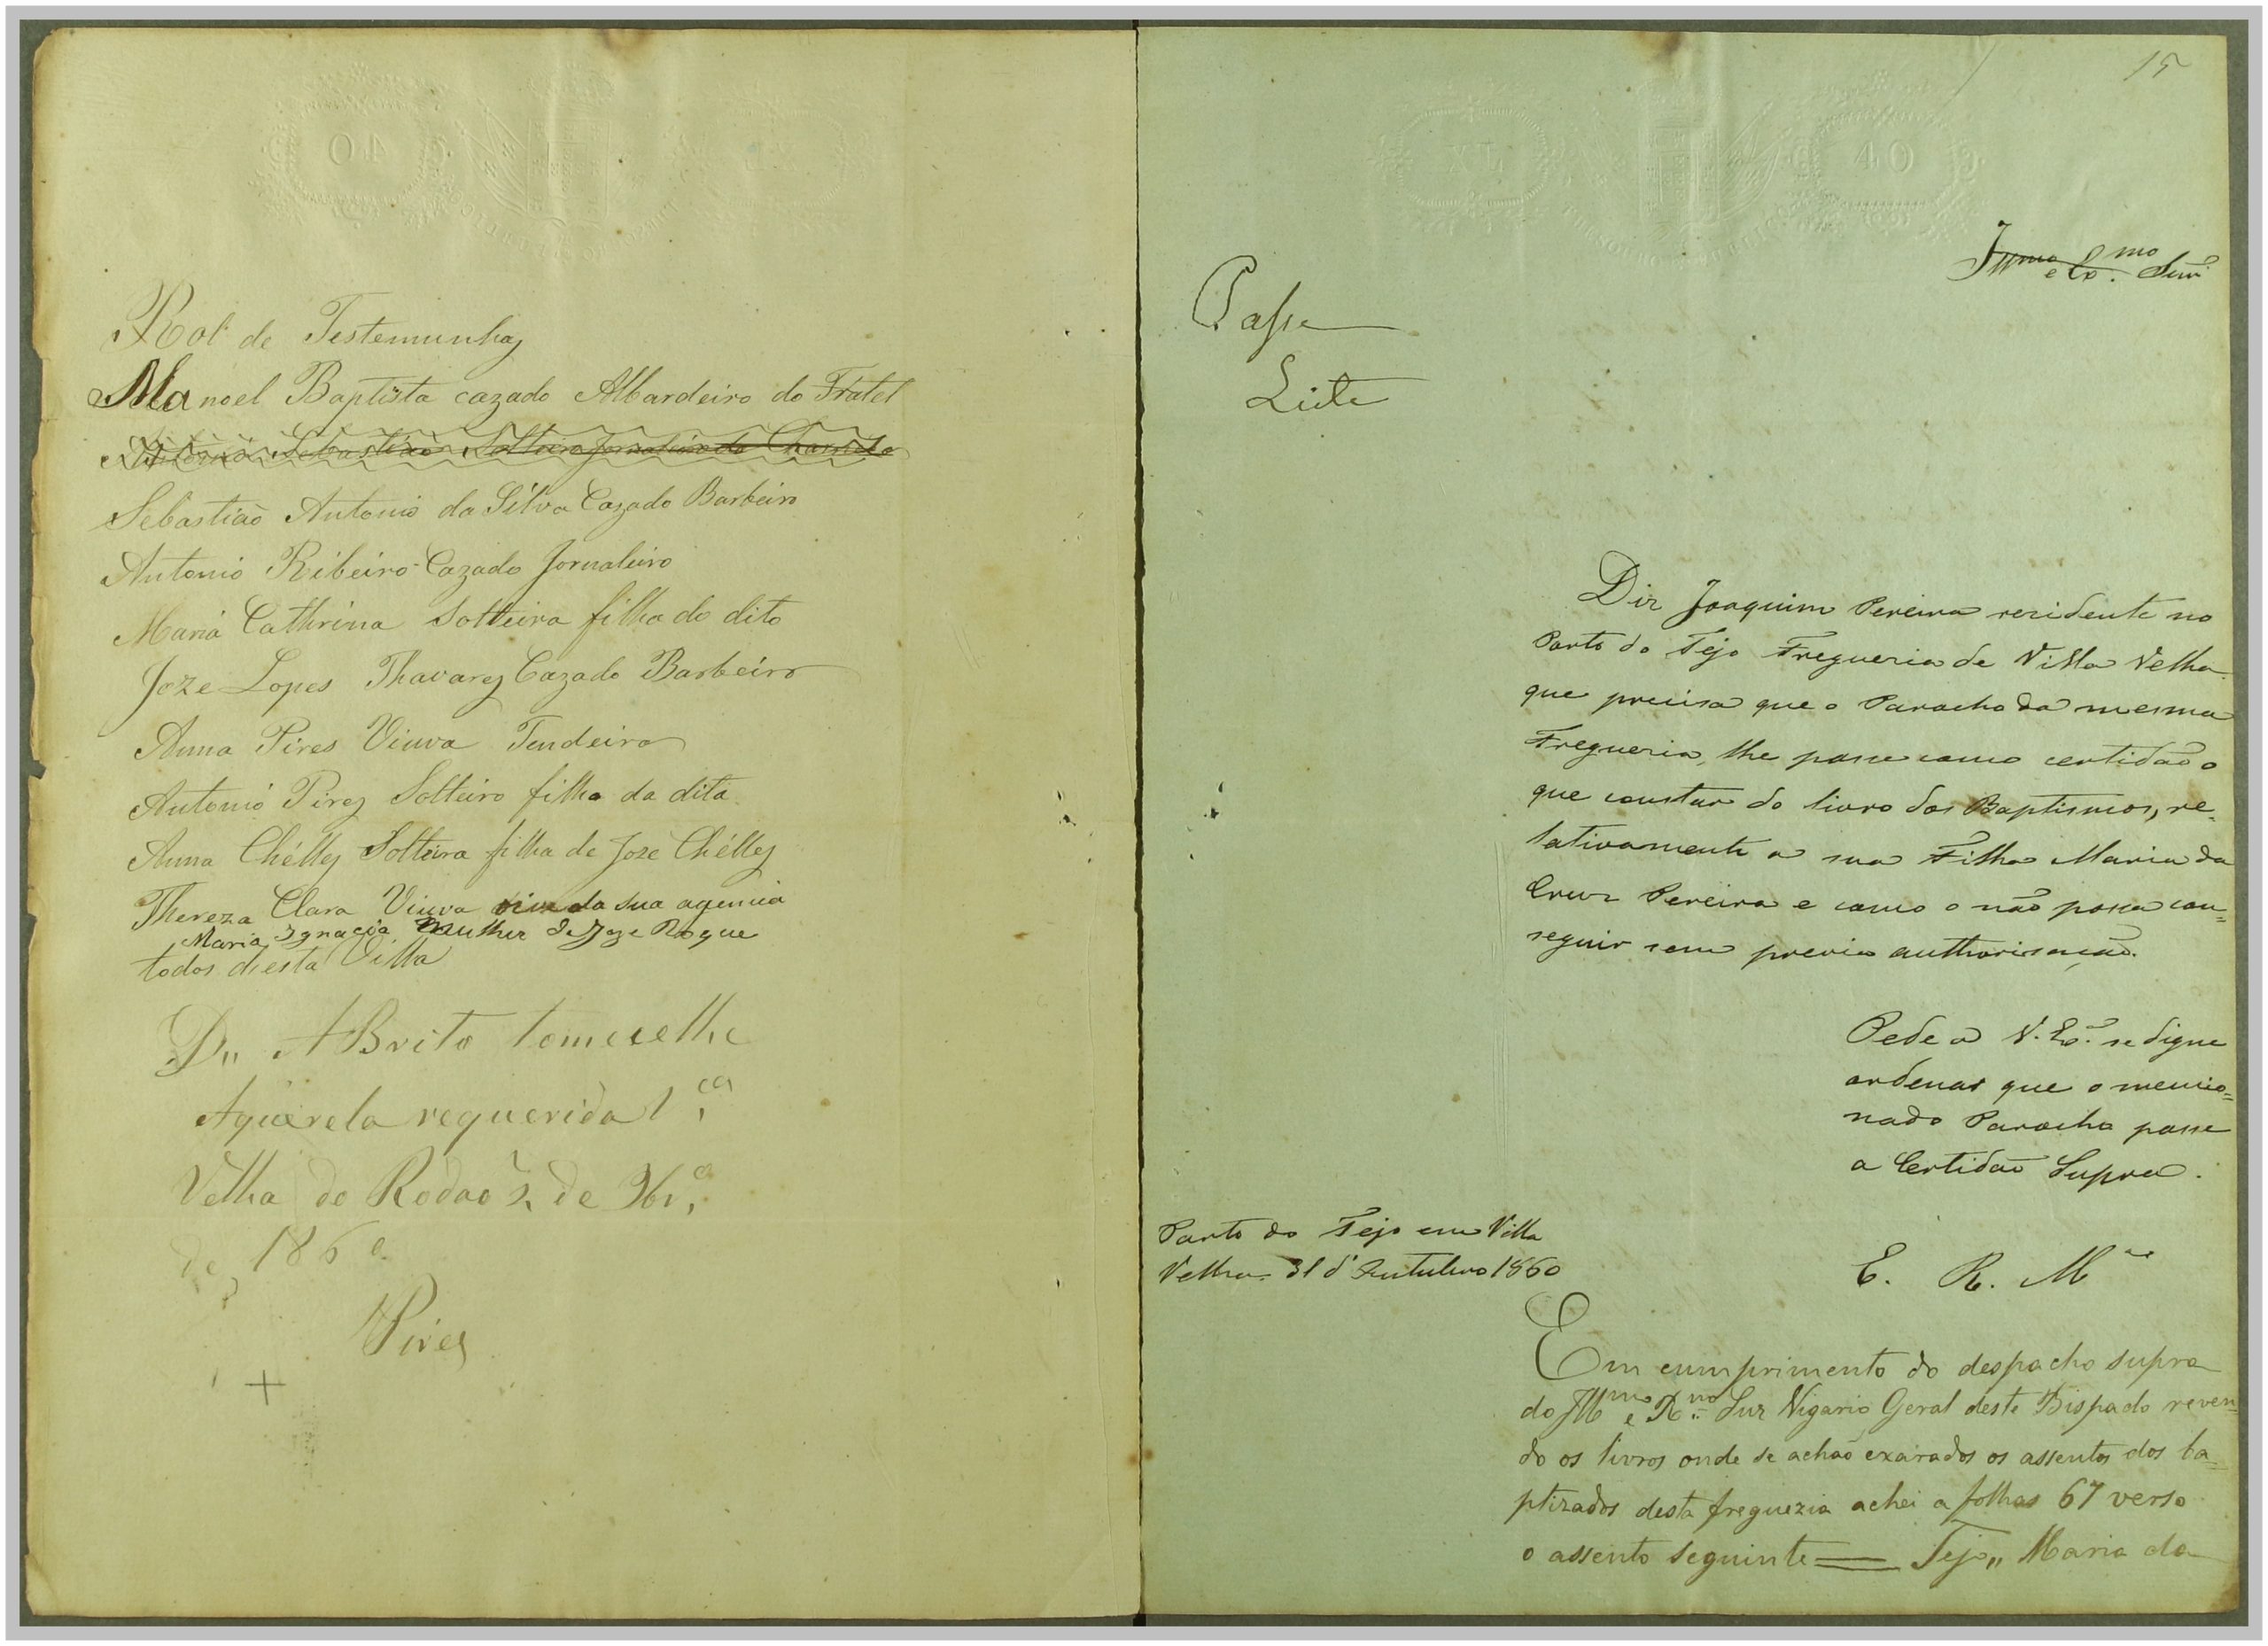 Rol de Testemunhas
Manoel Baptista cazado Albardeiro do Fratel
Antonio Sebastião Solteiro Jornaleiro da Charneca
Sebastião Antonio da Silva Cazado Barbeiro
Antonio Ribeiro Cazado Jornaleiro
Maria Cathrina Solteira filha do dito
Joze Lopes Thavares Cazado Barbeiro
Anna Pires Viuva Tendeira
Antonio Pires Solteiro filho da dita
Anna Chélles Solteira filha de Joze Chélles
Thereza Clara Viuva vive da sua agencia
Maria Ignacia Mulher de Joze Roque
todos d'esta Villa
D,, A Brito tome-se lhe
A querela requerida V.ª
Velha de Rodaõ 2 de 9br.º
de 1860.
Pires
15
Illmo e Ex.mo Snr.
Passe
Leite
Diz Joaquim Pereira rezidente no
Porto do Tejo Fregueria de Villa Velha
que precisa que o Paracho da mesma
Fregueria, lhe passe como certidaõ o
que constar do livro dos Baptismos, re-
lativamente a sua Filha Maria da
Cruz Pereira e como o naõ possa con=
seguir sem previa authorisaçaõ.
Pede a V. Ex.ª se digne
ordenar que o mencio=
nado Paracho passe
a Certidaõ Supra.
Porto do Tejo em Villa
Velha 31 d'Outubro 1860
E. R. M.ce
Em cumprimento do despacho supra
do Illmo e Rmo Snr Vigario Geral deste Bispado reven=
do os livros onde se achaõ exarados os assentos dos ba=
ptizados desta freguezia achei a folhas 67 verso
o assento seguinte = Tejo,, Maria da